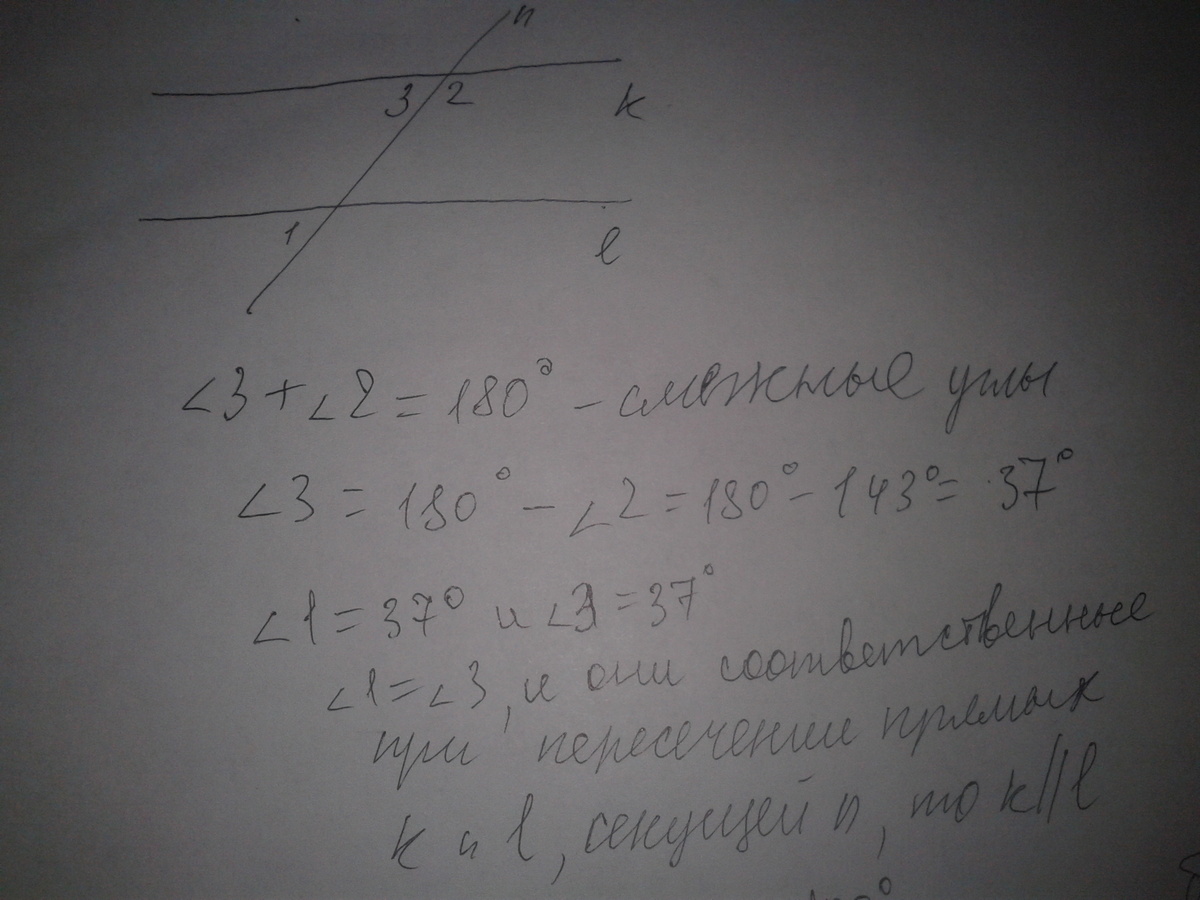 n
3 2
k
1
l
∠3 + ∠2 = 180° - смежные углы
∠3 = 180° - ∠2 = 180° - 143° = 37°
∠1 = 37° и ∠3 = 37°
∠1 = ∠3, и они соответственные
при пересечении прямых
k и l, секущей n, то k || l